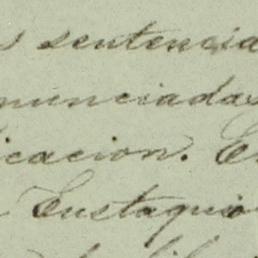 s sentencia
nunciadas
icacion. E
Eustaquio